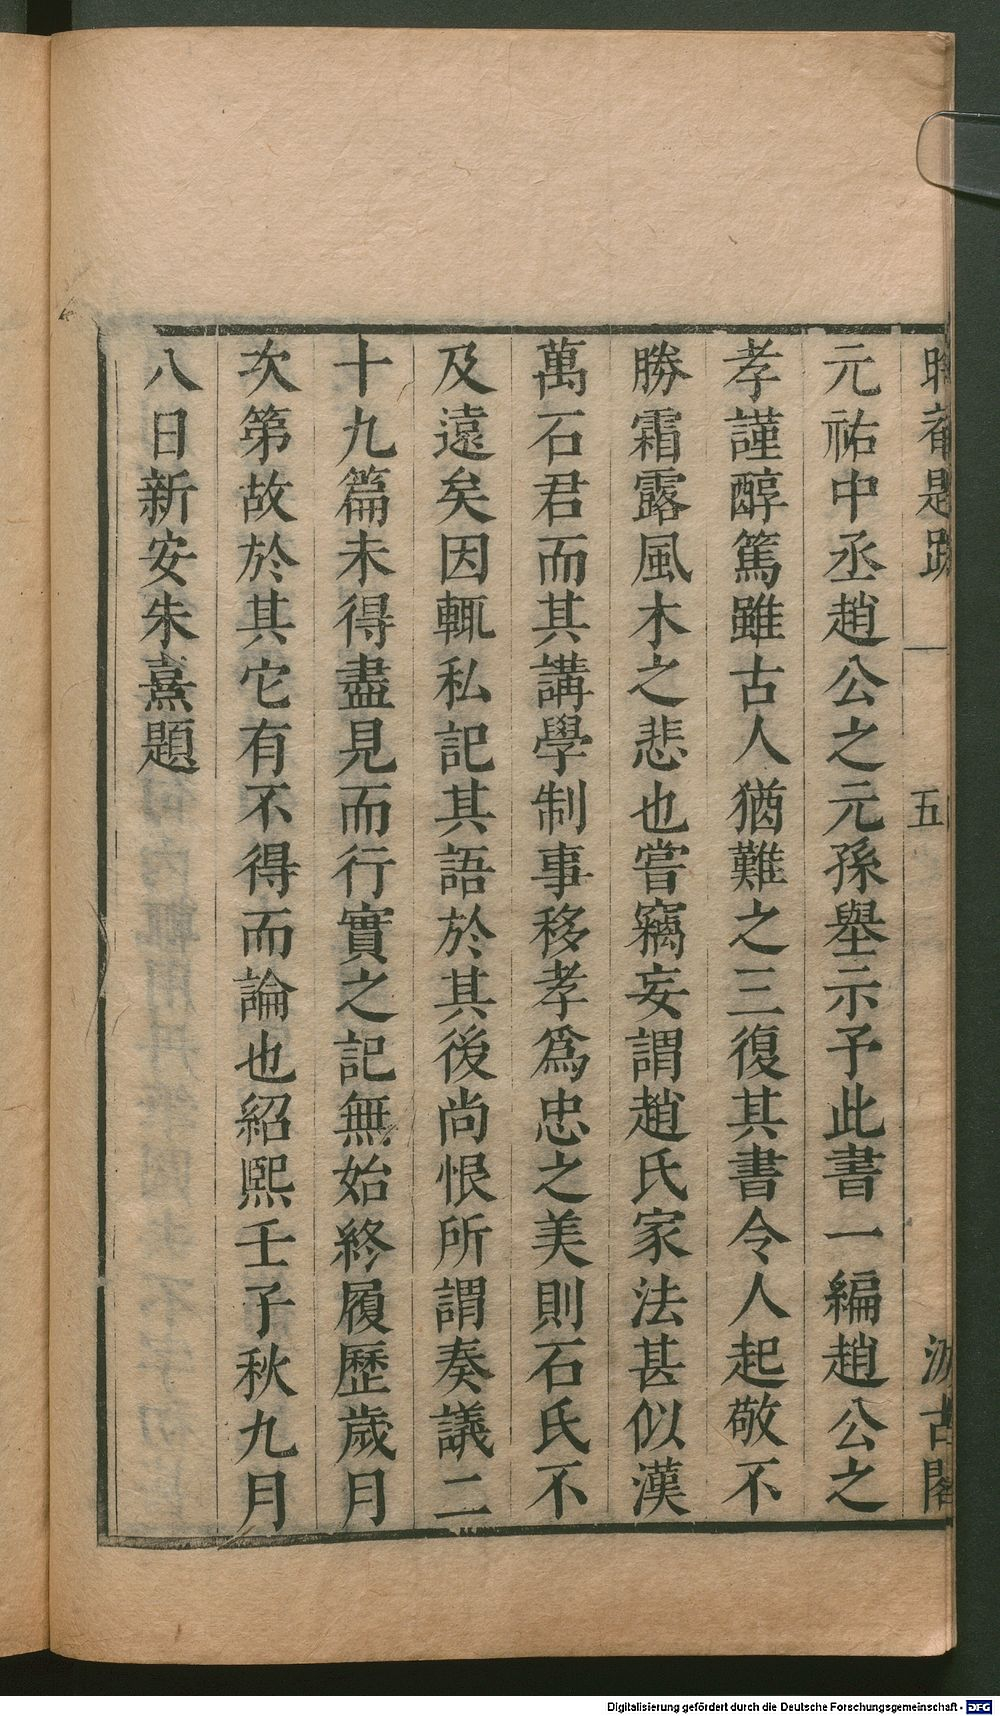 晦菴題跋 一 五 汲古閣
元祐中丞趙公之元孫壆示予此書一編趙公之
孝謹醇篤雖古人猶難之三復其書令人起敬不
勝霜露風木之悲也嘗竊妄謂趙氏家法甚似漢
萬石君而其講學制事移孝爲忠之美則石氏不
及遠矣因輒私記其語於其後尚恨所謂奏議二
十九篇未得盡見而行實之記無始終履歷歲月
次第故於其它有不得而論也紹熙壬子秋九月
八日新安朱熹題
Digitalisierung gefördert durch die Deutsche Forschungsgemeinschaft - DFG